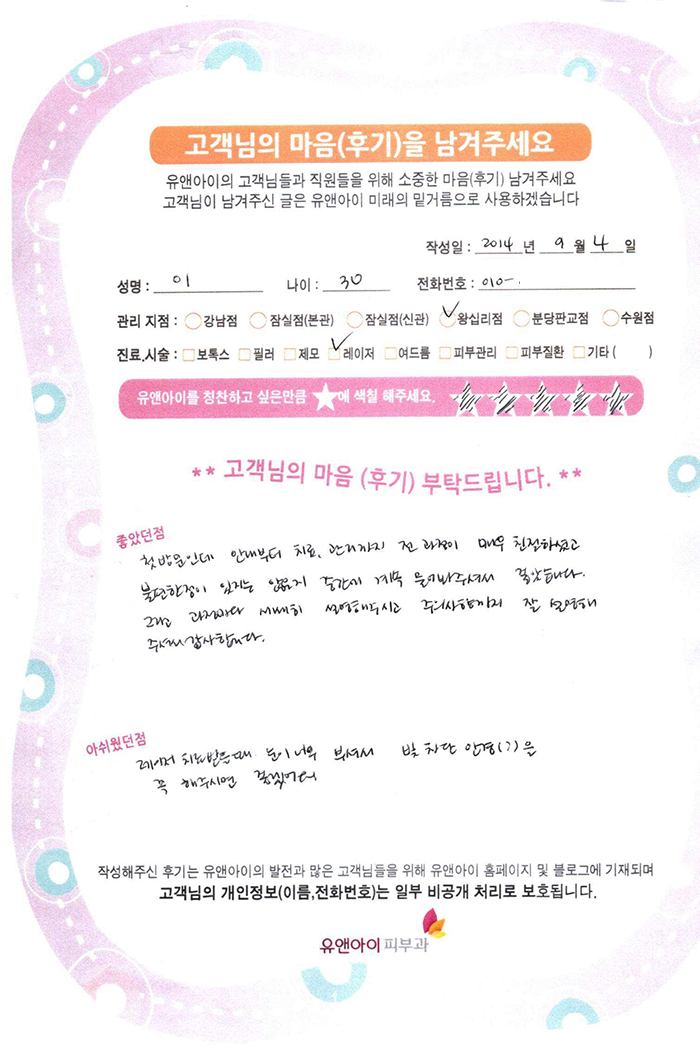 고객님의 마음(후기)을 남겨주세요
유앤아이의 고객님들과 직원들을 위해 소중한 마음(후기) 남겨주세요
고객님이 남겨주신 글은 유앤아이 미래의 밑거름으로 사용하겠습니다
작성일 : 2014 년 9 월 4 일
성명 : 이 나이 : 30 전화번호 : 010-.
관리 지점 : 강남점 잠실점(본관) 잠실점(신관) 왕십리점 분당판교점 수원점
진료.시술 : 보톡스 필러 제모 레이저 여드름 피부관리 피부질환 기타 ( )
유앤아이를 칭찬하고 싶은만큼 ★에 색칠 해주세요.
** 고객님의 마음 (후기) 부탁드립니다. **
좋았던점
첫방문인데 안내부터 치료, 관리까지 전 과정이 매우 친절하셨고
불편한점이 있지는 않은지 중간에 계속 물어봐주셔서 좋았습니다.
그리고 과정마다 세세히 설명해주시고 주의사항까지 잘 설명해
주셔서 감사합니다.
아쉬웠던점
레이저 치료받을때 눈이 너무 부셔서 빛 차단 안경(?)을
꼭 해주시면 좋겠어요
작성해주신 후기는 유앤아이의 발전과 많은 고객님들을 위해 유앤아이 홈페이지 및 블로그에 기재되며
고객님의 개인정보(이름,전화번호)는 일부 비공개 처리로 보호됩니다.
유앤아이 피부과